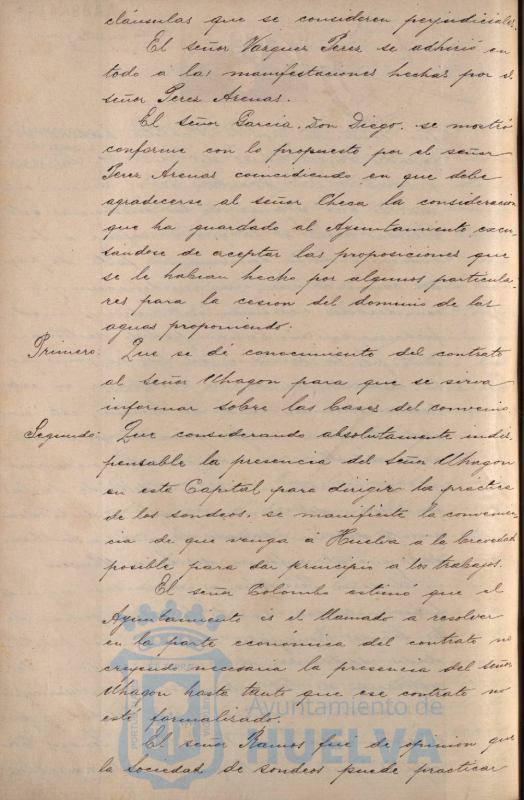 cláusulas que se consideren perjudiciales.
El señor Vazquez Perez se adhirió en
todo á las manifestaciones hechas por el
señor Perez Arenas.
El señor Garcia, Don Diego, se mostró
conforme con lo propuesto por el señor
Perez Arenas coincidiendo en que debe
agradecerse al señor Checa la consideracion
que ha guardado al Ayuntamiento excu-
sandose de aceptar las proposiciones que
se le habian hecho por algunos particula-
res para la cesion del dominio de las
aguas proponiendo:
Primero: Que se dé conocimiento del contrato
al señor Uhagon para que se sirva
informar sobre las bases del convenio.
Segundo: Que considerando absolutamente indis-
pensable la presencia del señor Uhagon
en esta Capital para dirigir la práctica
de los sondeos, se manifieste la convenien-
cia de que venga á Huelva á la brevedad
posible para dar principio á los trabajos.
El señor Colombo estimó que el
Ayuntamiento es el llamado a resolver
en la parte económica del contrato no
creyendo necesaria la presencia del señor
Uhagon hasta tanto que ese contrato no
esté formalizado.
El señor Ramos fué de opinion que
la Sociedad de sondeos puede practicar
Ayuntamiento de
HUELVA